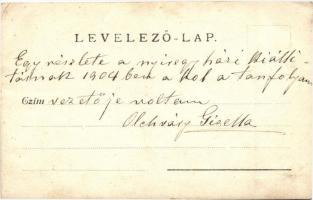 LEVELEZŐ-LAP.
Egy részlete a nyiregyházi kiálli-
tásnak 1904 ben a hol a tanfolyam
Czim vezetője voltam
Olchváry Gizella